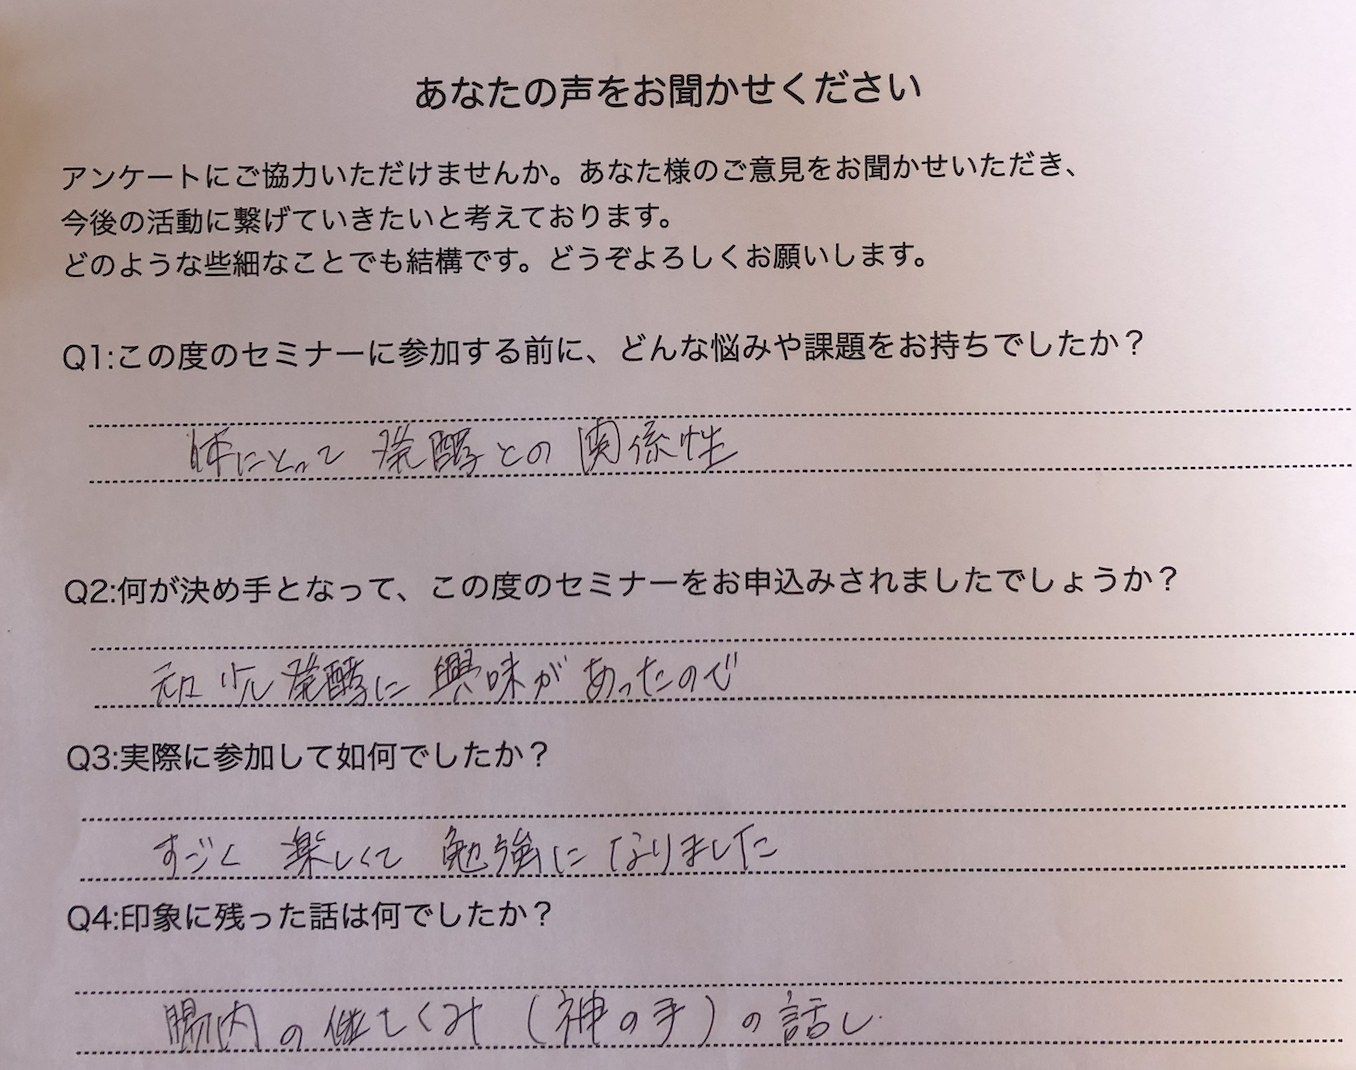 あなたの声をお聞かせください
アンケートにご協力いただけませんか。あなた様のご意見をお聞かせいただき、
今後の活動に繋げていきたいと考えております。
どのような些細なことでも結構です。どうぞよろしくお願いします。
Q1:この度のセミナーに参加する前に、どんな悩みや課題をお持ちでしたか？
体にとって 発酵との 関係性
Q2:何が決め手となって、この度のセミナーをお申込みされましたでしょうか？
元々 発酵に 興味が あったので
Q3:実際に参加して如何でしたか？
すごく 楽しくて 勉強に なりました
Q4:印象に残った話は何でしたか？
腸内 の しくみ (神の手) の 話し